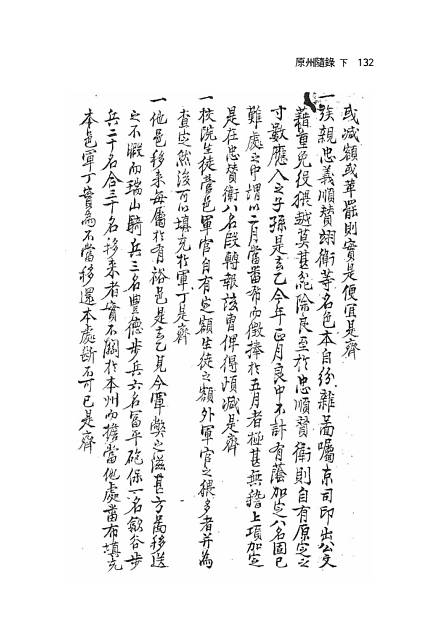 原州隨錄 下 132
或減額或革罷則實是便宜是齊
一族親忠義順贊翊衛等名色本自紛雜啚囑京司印出公文
藉重免役猥越莫甚除良至於忠順贊衛則自有原定之
寸數應入之子孫是去乙今年正月良中不計有蔭加定八名固已
難處之中以二月當番布而徵捧於五月者極甚無稽上項加定
是在忠贊衛八名段轉報該曹俾得頉減是齊
一校院生徒營邑軍官自有定額生徒之額外軍官之猥多者并為
查定然後可以填充於軍丁是齊
一他邑移來每於有裕邑是去乙見今軍弊之滋甚方啚移送
之不暇而瑞山騎兵三名豊德步兵六名富平砲保一名歙谷步
兵二十名合三十名移來者實不關於本州而擔當他處番布填充
本邑軍丁實為不當移還本處斷不可已是齊